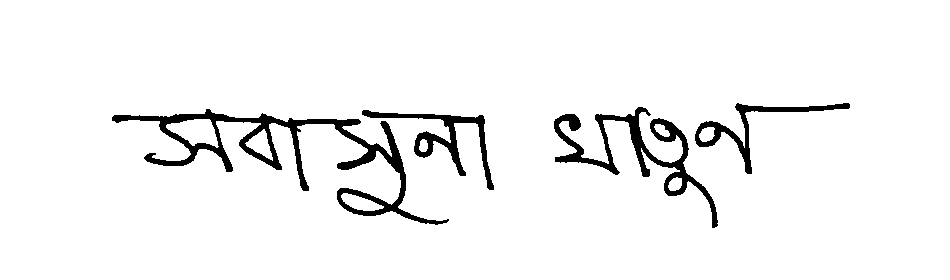 সবাসুনা খাতুন